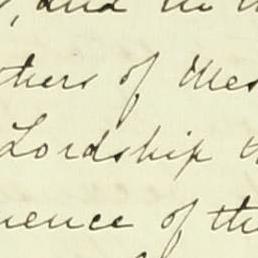 , and
thers of these
Lordship
uence of the